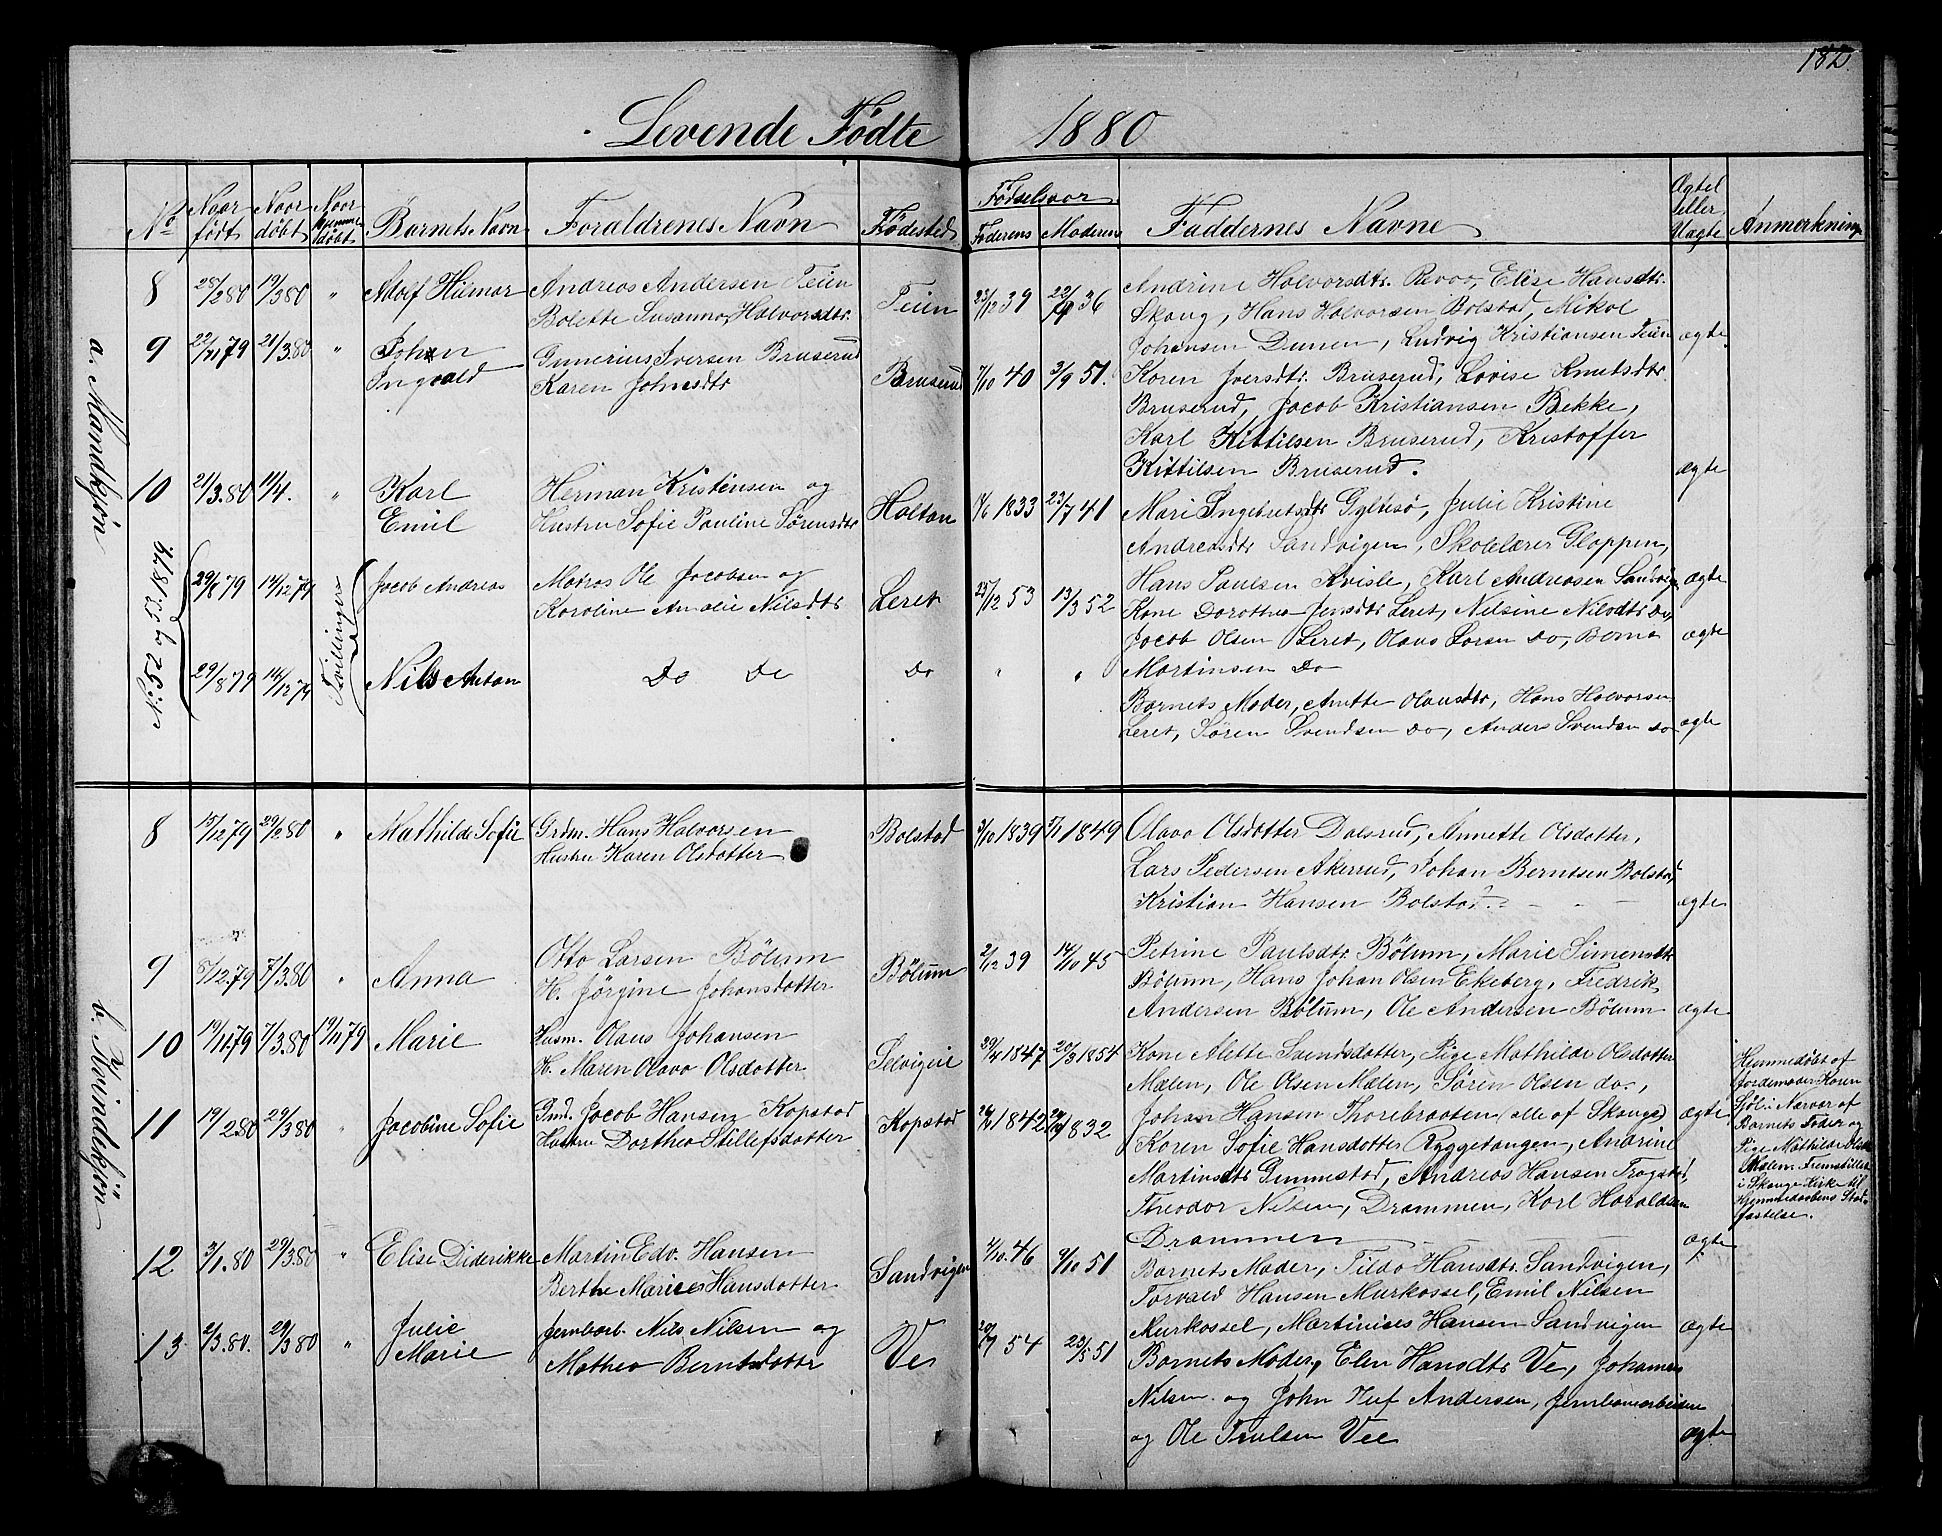 182.
Levende Fødte 1880
No Naar født Naar døbt Naar hjemme døbt Barnets Navn Forældrenes Navn Fødested Fødselsaar Faderens Moderens Faddernes Navne Ægte eller Uægte Anmerkning
a. Mandkjøn
8 28/2 80 19/3 80 " Adolf Hilmar Andreas Andersen Teien Teien 23/12 39 36 Andrine Halvorsdtr. Revaa, Elise Hansdtr.
Bolette Susanna Halvorsdtr. Skoug, Hans Halvorsen Bolstad, Mikal
Johansen Dunen, Ludvig Kristiansen Teien ægte
9 22/11 79 21/3.80 " Johan Gunerius Iversen Bruserud Bruserud 7/10 40 3/9 51. Karen Iversdtr. Bruserud, Lovise Knutsdtr
Ingvald Karen Johnsdtr Bruserud, Jacob Kristiansen Bekke,
Karl Kittilsen Bruserud, Kristoffer
Kittilsen Bruserud. ægte
10 21/3.80 11/4. " Karl Herman Kristensen og Holtan 1833 23/7 41 Mari Ingebretsdtr Gyltesø, Julie Kristine
Emil Hustru Sofie Pauline Sørensdtr Andreasdtr Sandvigen, Skolelærer Gloppen,
Hans Paulsen Kvisle, Karl Andreasen Sandvigen ægte
29/8 79 14/12 79 Tvillinger Jacob Andreas Matros Ole Jacobsen og Leret 25/12 53 13/3 52 Kone Dorothea Jensdtr Leret, Nilsine Nilsdtr do,
Karoline Amalie Nilsdtr Jacob Olsen Leret, Olaus Larsen do, Berna ægte
Martinsen do
29/8 79 14/12 79 Nils Anton Do Do Do " " Barnets Moder, Anette Olausdtr, Hans Halvorsen
Leret, Søren Svendsen do, Anders Svendsen do ægte
b. Kvindekjøn
8 13/12 79 29/2 80 " Mathilde Sofie Grdm. Hans Halvorsen Bolstad 3/10 1839 1849 Olava Olsdotter Dalsrud, Annette Olsdotter,
Hustru Karen Olsdotter Lars Pedersen Akerrud, Johan Berntsen Bolstad,
Kristian Hansen Bolstad. ægte
9 8/12.79 7/3.80 " Anna Otto Larsen Bölum Bölum 2/12 39 14/10 45 Petrine Paulsdtr Bölum, Marie Simensdtr
H. Jörgine Johansdotter Bölum, Hans Johan Olsen Ekeberg, Fredrik
Andersen Bölum, Ole Andersen Bölum ægte
10 19/11.79 7/3.80 19/11 79 Marie Husm. Olaus Johansen Selvigeie 29/4 1847 20/3 1854 Kone Alette Svendsdotter, Pige Mathilde Olsdotter
H. Maren Olava Olsdotter Mælen, Ole Olsen Mælen, Søren Olsen do,
Johan Hansen Thorebraaten (alle af Skauge) ægte
Hjemmedøbt af
Jordemoder Karen
Sjöli Nærvær af
Barnets Fader og
Pige Mathilde Olsdtr
Mælem. Fremstillet
i Skauge Kirke til
Hjemmedaabens Stad-
fæstelse.
11 19/2 80 29/3 80 " Jacobine Sofie Grd. Jacob Hansen Kopstad Kopstad 1842 1832 Karen Sofie Hansdotter Ryggetangen, Andrine
Hustru Dorthea Stillefsdotter Martinsdtr Gunnestad, Andreas Hansen Trogstad,
Theodor Nilsen, Drammen, Karl Haraldsen
Drammen ægte
12 3/1.80 29/3.80 " Elise Diderikke Martin Edv. Hansen Sandvigen 2/10.46 9/10 51 Barnets Moder, Tilda Hansdtr. Sandvigen,
Berthe Marie Hansdotter Torvald Hansen Murkossel, Emil Nilsen
Kurkossel, Martinius Hansen Sandvigen ægte
13 2/3.80. 29/3 80 " Julie Jernbarb. Nils Nilsen og Ve 20/7 54 23/5 51 Barnets Moder, Elen Hansdtr Ve, Johannes
Marie Mathea Berntsdotter Nilsen og John Oluf Andersen, Jernbanearbeidere
og Ole Trulsen Vee ægte